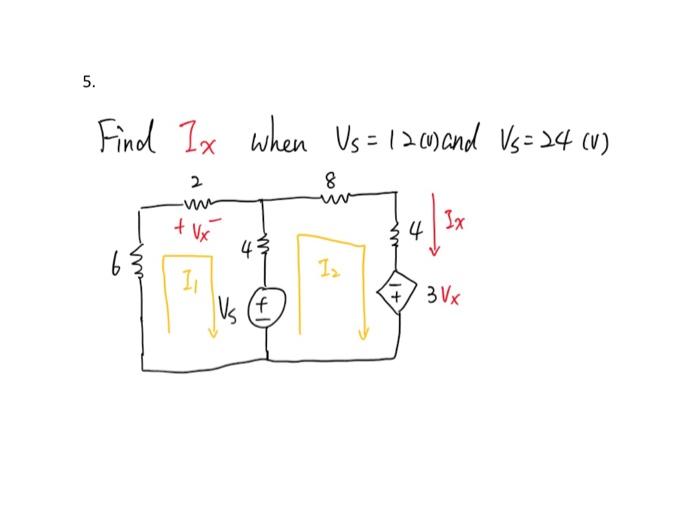 5.
Find Ix when Vs = 12 (V) and Vs = 24 (V)
2 8
+ Vx -
4 Ix
4
6
I1 I2
Vs + - - + 3Vx